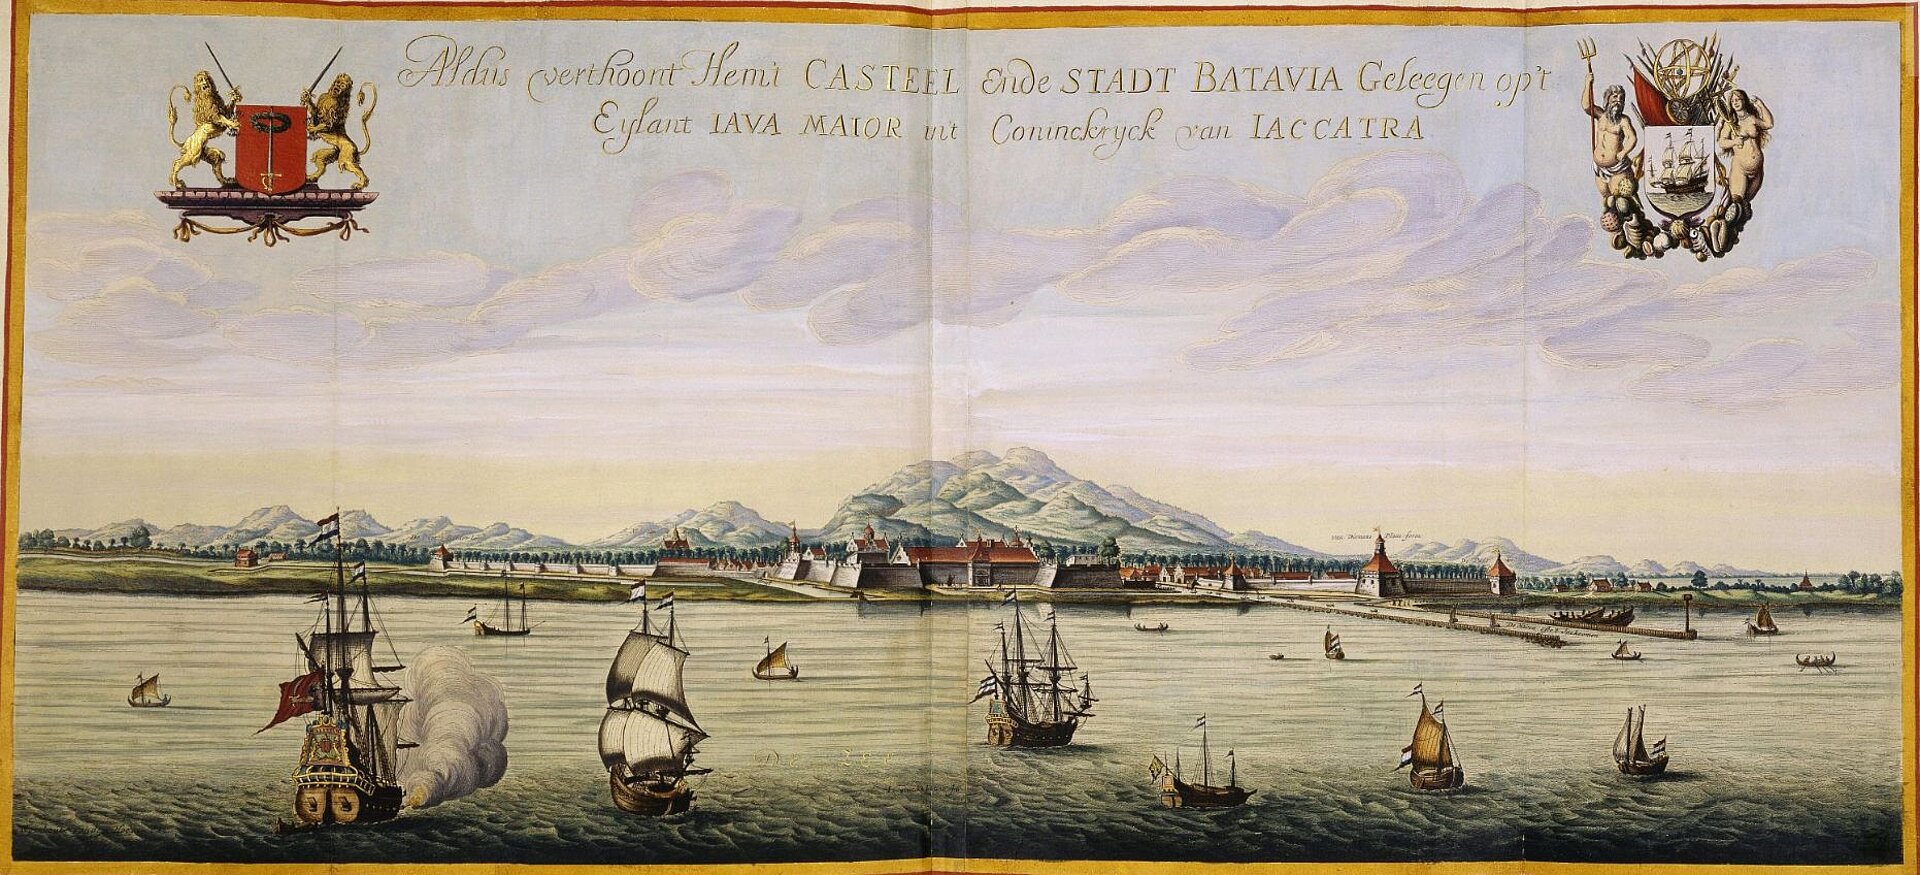 Aldus verthoont Hem't CASTEEL ende STADT BATAVIA Geleegen op't
Eylant IAVA MAIOR in't Coninckryck van IACCATRA
van Diemens Plate-form